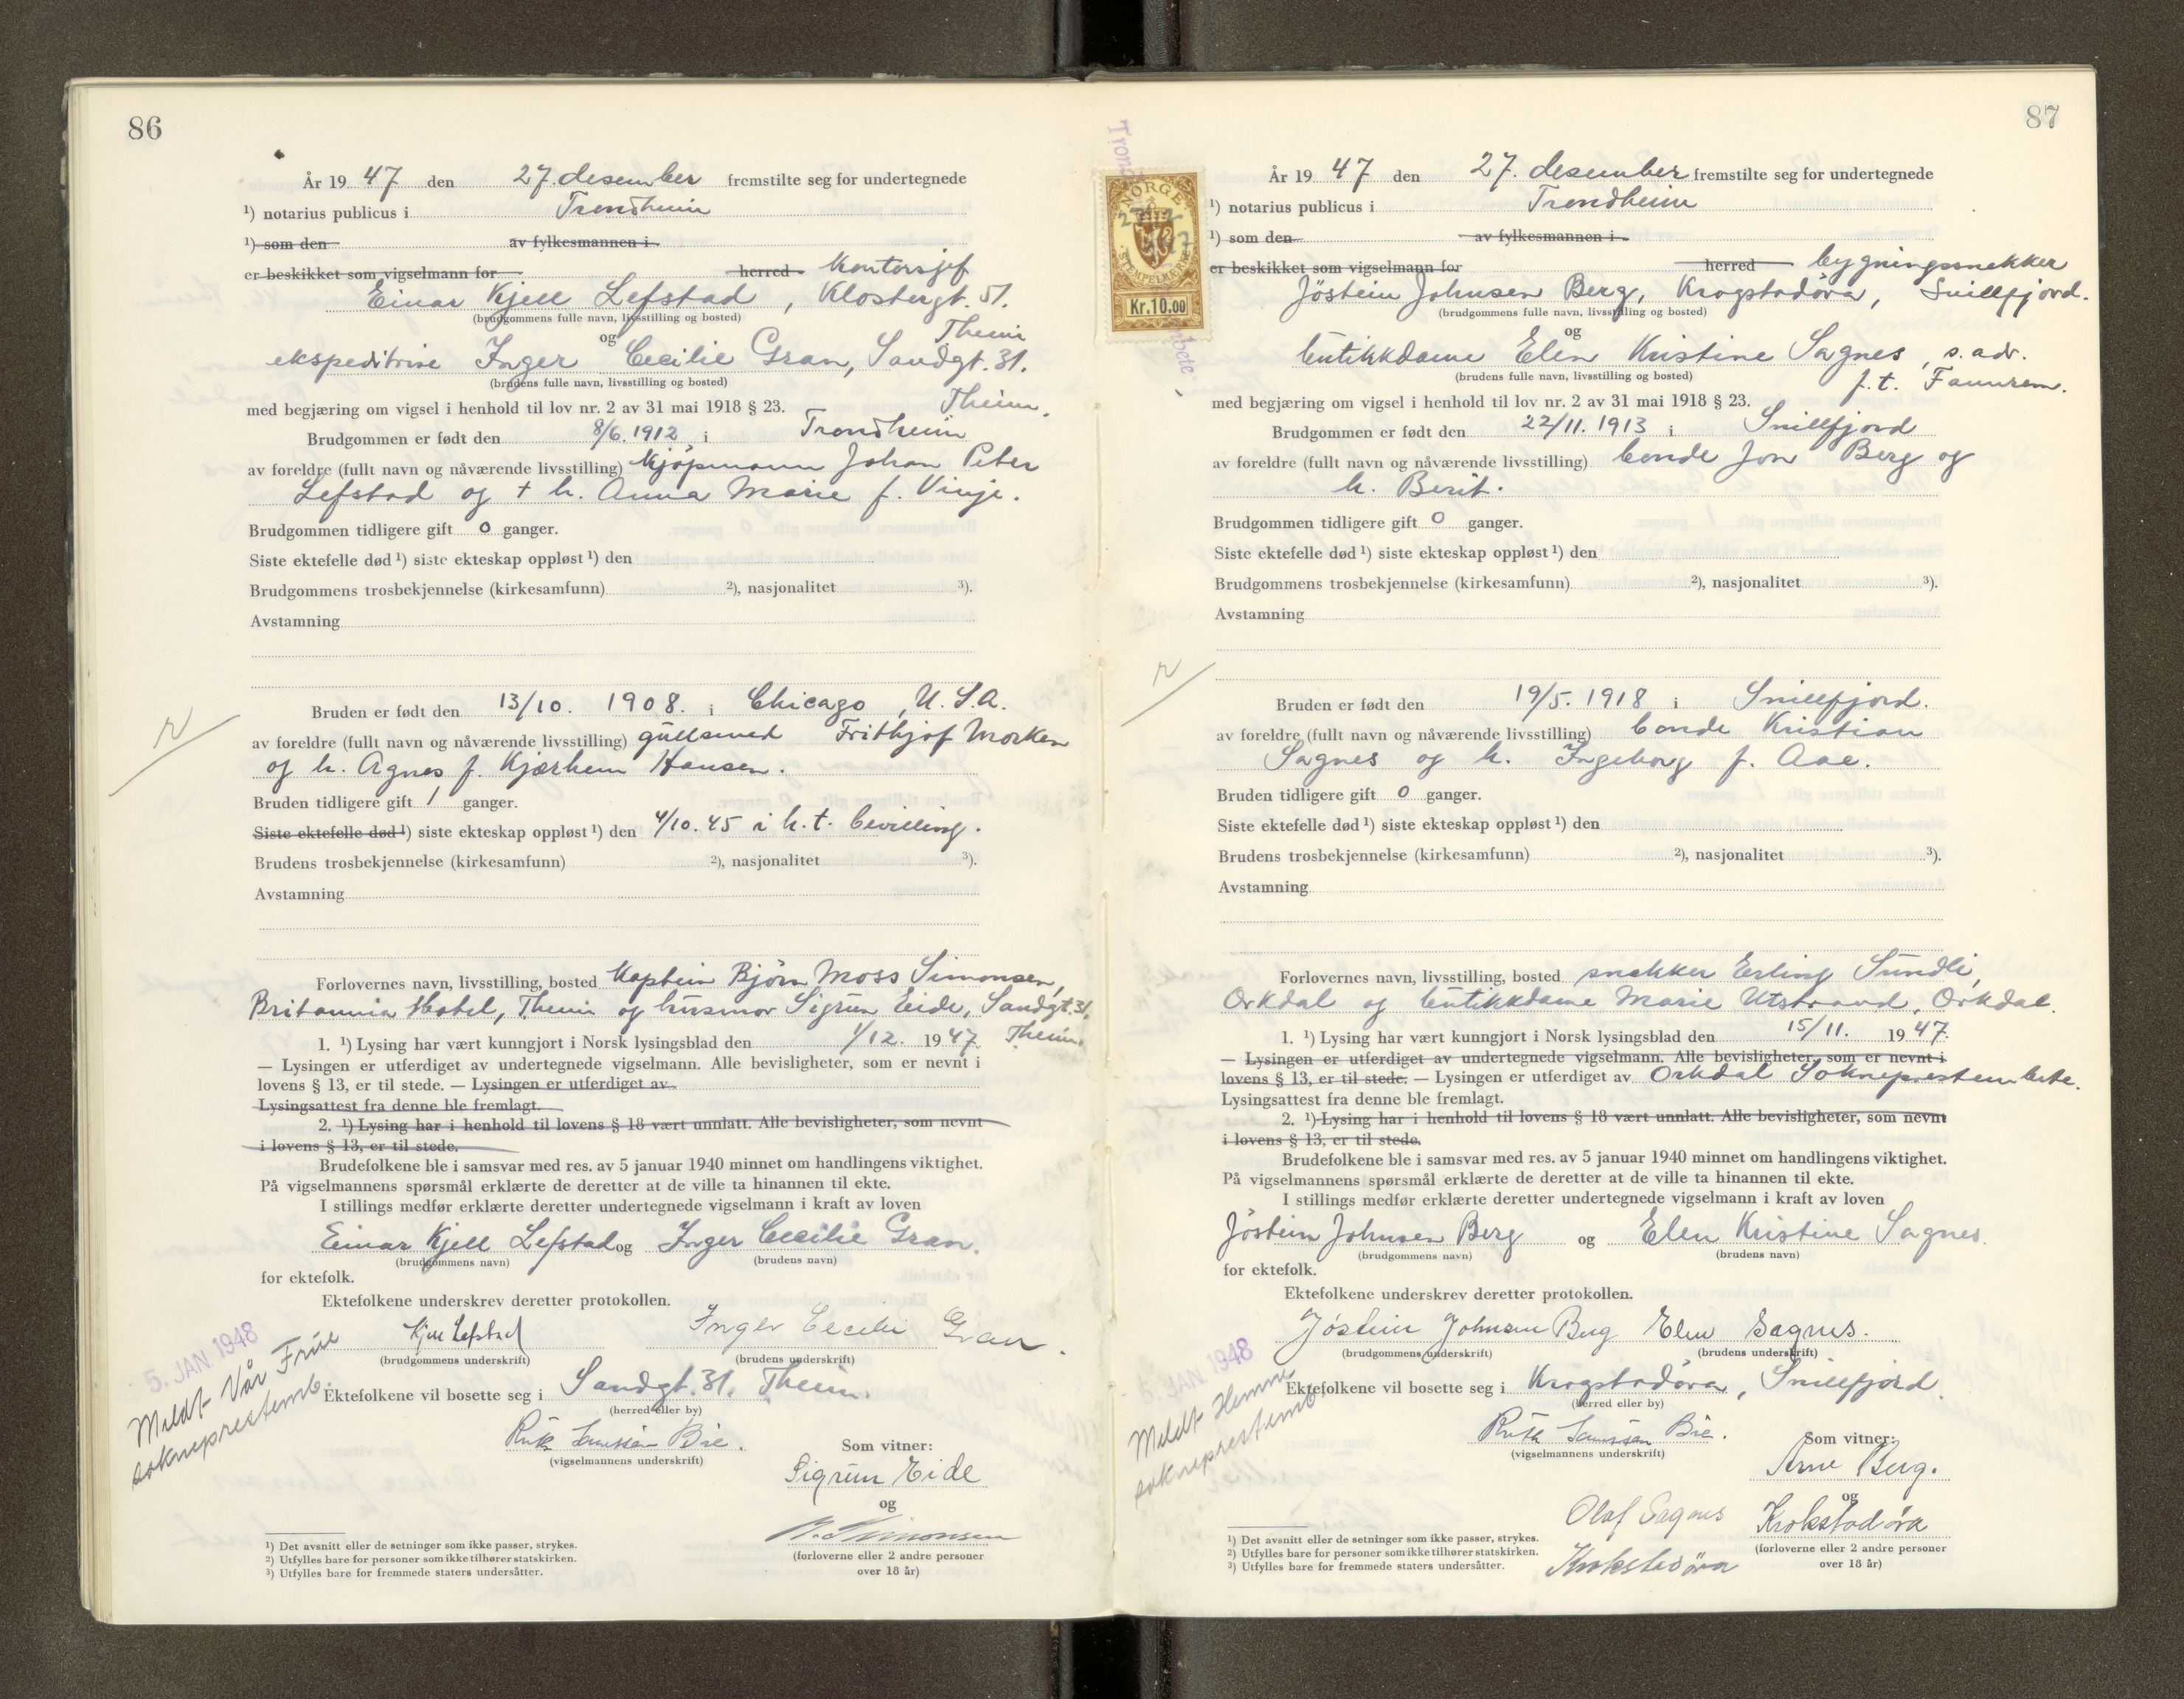 86
År 19 47 den 27. desember fremstilte seg for undertegnede
¹) notarius publicus i Trondheim
¹) som den av fylkesmannen i
er beskikket som vigselmann for herred Kontorsjef
Einar Kjell Lefstad, Klostergt. 51.
(brudgommens fulle navn, livsstilling og bosted)
Theim
og
ekspeditrise Inger Cecilie Gran, Sandgt. 31.
(brudens fulle navn, livsstilling og bosted)
Theim.
med begjæring om vigsel i henhold til lov nr. 2 av 31 mai 1918 § 23.
Brudgommen er født den 8/6. 1912 i Trondheim
av foreldre (fullt navn og nåværende livsstilling) Kjöpmann Johan Peter
Lefstad og + h. Anna Marie f. Vinje.
Brudgommen tidligere gift 0 ganger.
Siste ektefelle død ¹) siste ekteskap oppløst ¹) den
Brudgommens trosbekjennelse (kirkesamfunn) ²), nasjonalitet ³).
Avstamning
Bruden er født den 13/10. 1908. i Chicago, U.S.A.
av foreldre (fullt navn og nåværende livsstilling) gullsmed Frithjof Morken
og h. Agnes f. Kjærhem Hansen.
Bruden tidligere gift 1 ganger.
Siste ektefelle død ¹) siste ekteskap oppløst ¹) den 4/10. 45 i h.t. bevilling.
Brudens trosbekjennelse (kirkesamfunn) ²), nasjonalitet ³).
Avstamning
Forlovernes navn, livsstilling, bosted Kaptein Björn Moss Simonsen,
Britannia Hotel, Theim og husmor Sigrun Eide, Sandgt. 31.
Theim.
1. ¹) Lysing har vært kunngjort i Norsk lysingsblad den 1/12. 19 47.
— Lysingen er utferdiget av undertegnede vigselmann. Alle bevisligheter, som er nevnt i
lovens § 13, er til stede. — Lysingen er utferdiget av
Lysingsattest fra denne ble fremlagt.
2. ¹) Lysing har i henhold til lovens § 18 vært unnlatt. Alle bevisligheter, som nevnt
i lovens § 13, er til stede.
Brudefolkene ble i samsvar med res. av 5 januar 1940 minnet om handlingens viktighet.
På vigselmannens spørsmål erklærte de deretter at de ville ta hinannen til ekte.
I stillings medfør erklærte deretter undertegnede vigselmann i kraft av loven
Einar Kjell Lefstad og Inger Cecilie Gran.
(brudgommens navn) (brudens navn)
for ektefolk.
Ektefolkene underskrev deretter protokollen.
Kjell Lefstad Inger Cecilie Gran.
(brudgommens underskrift) (brudens underskrift)
5. JAN. 1948
Meldt Vår Frue
sokneprestemb.
Ektefolkene vil bosette seg i Sandgt. 31. Theim.
(herred eller by)
Ruth Bie.
(vigselmannens underskrift)
Som vitner:
Sigrun Eide
og
Simonsen
(forloverne eller 2 andre personer
over 18 år)
¹) Det avsnitt eller de setninger som ikke passer, strykes.
²) Utfylles bare for personer som ikke tilhører statskirken.
³) Utfylles bare for fremmede staters undersåtter.
87
NORGE
STEMPELMERKE
Kr.10.00
År 19 47 den 27. desember fremstilte seg for undertegnede
¹) notarius publicus i Trondheim
¹) som den av fylkesmannen i
er beskikket som vigselmann for herred bygningssnekker
Jöstein Johnsen Berg, Krogstadöra, Snillfjord.
(brudgommens fulle navn, livsstilling og bosted)
og
butikkdame Elen Kristine Sagnes, s. adr.
(brudens fulle navn, livsstilling og bosted)
f.t. Fannrem.
med begjæring om vigsel i henhold til lov nr. 2 av 31 mai 1918 § 23.
Brudgommen er født den 22/11. 1913 i Snillfjord
av foreldre (fullt navn og nåværende livsstilling) bonde Jon Berg og
h. Berit.
Brudgommen tidligere gift 0 ganger.
Siste ektefelle død ¹) siste ekteskap oppløst ¹) den
Brudgommens trosbekjennelse (kirkesamfunn) ²), nasjonalitet ³).
Avstamning
Bruden er født den 19/5. 1918 i Snillfjord.
av foreldre (fullt navn og nåværende livsstilling) bonde Kristian
Sagnes og h. Ingeborg f. Aae.
Bruden tidligere gift 0 ganger.
Siste ektefelle død ¹) siste ekteskap oppløst ¹) den
Brudens trosbekjennelse (kirkesamfunn) ²), nasjonalitet ³).
Avstamning
Forlovernes navn, livsstilling, bosted snekker Erling Sundli,
Orkdal og butikkdame Marie Utstrand, Orkdal.
1. ¹) Lysing har vært kunngjort i Norsk lysingsblad den 15/11. 19 47.
— Lysingen er utferdiget av undertegnede vigselmann. Alle bevisligheter, som er nevnt i
lovens § 13, er til stede. — Lysingen er utferdiget av Orkdal Sokneprestembete.
Lysingsattest fra denne ble fremlagt.
2. ¹) Lysing har i henhold til lovens § 18 vært unnlatt. Alle bevisligheter, som nevnt
i lovens § 13, er til stede.
Brudefolkene ble i samsvar med res. av 5 januar 1940 minnet om handlingens viktighet.
På vigselmannens spørsmål erklærte de deretter at de ville ta hinannen til ekte.
I stillings medfør erklærte deretter undertegnede vigselmann i kraft av loven
Jöstein Johnsen Berg og Elen Kristine Sagnes.
(brudgommens navn) (brudens navn)
for ektefolk.
Ektefolkene underskrev deretter protokollen.
Jöstein Johnsen Berg Elen Sagnes.
(brudgommens underskrift) (brudens underskrift)
5. JAN. 1948
Meldt Hemne
sokneprestemb
Ektefolkene vil bosette seg i Krogstadöra, Snillfjord.
(herred eller by)
Ruth Bie.
(vigselmannens underskrift)
Som vitner:
Arne Berg.
og
Krokstadöra
Olaf Sagnes
Krokstadöra
(forloverne eller 2 andre personer
over 18 år)
¹) Det avsnitt eller de setninger som ikke passer, strykes.
²) Utfylles bare for personer som ikke tilhører statskirken.
³) Utfylles bare for fremmede staters undersåtter.